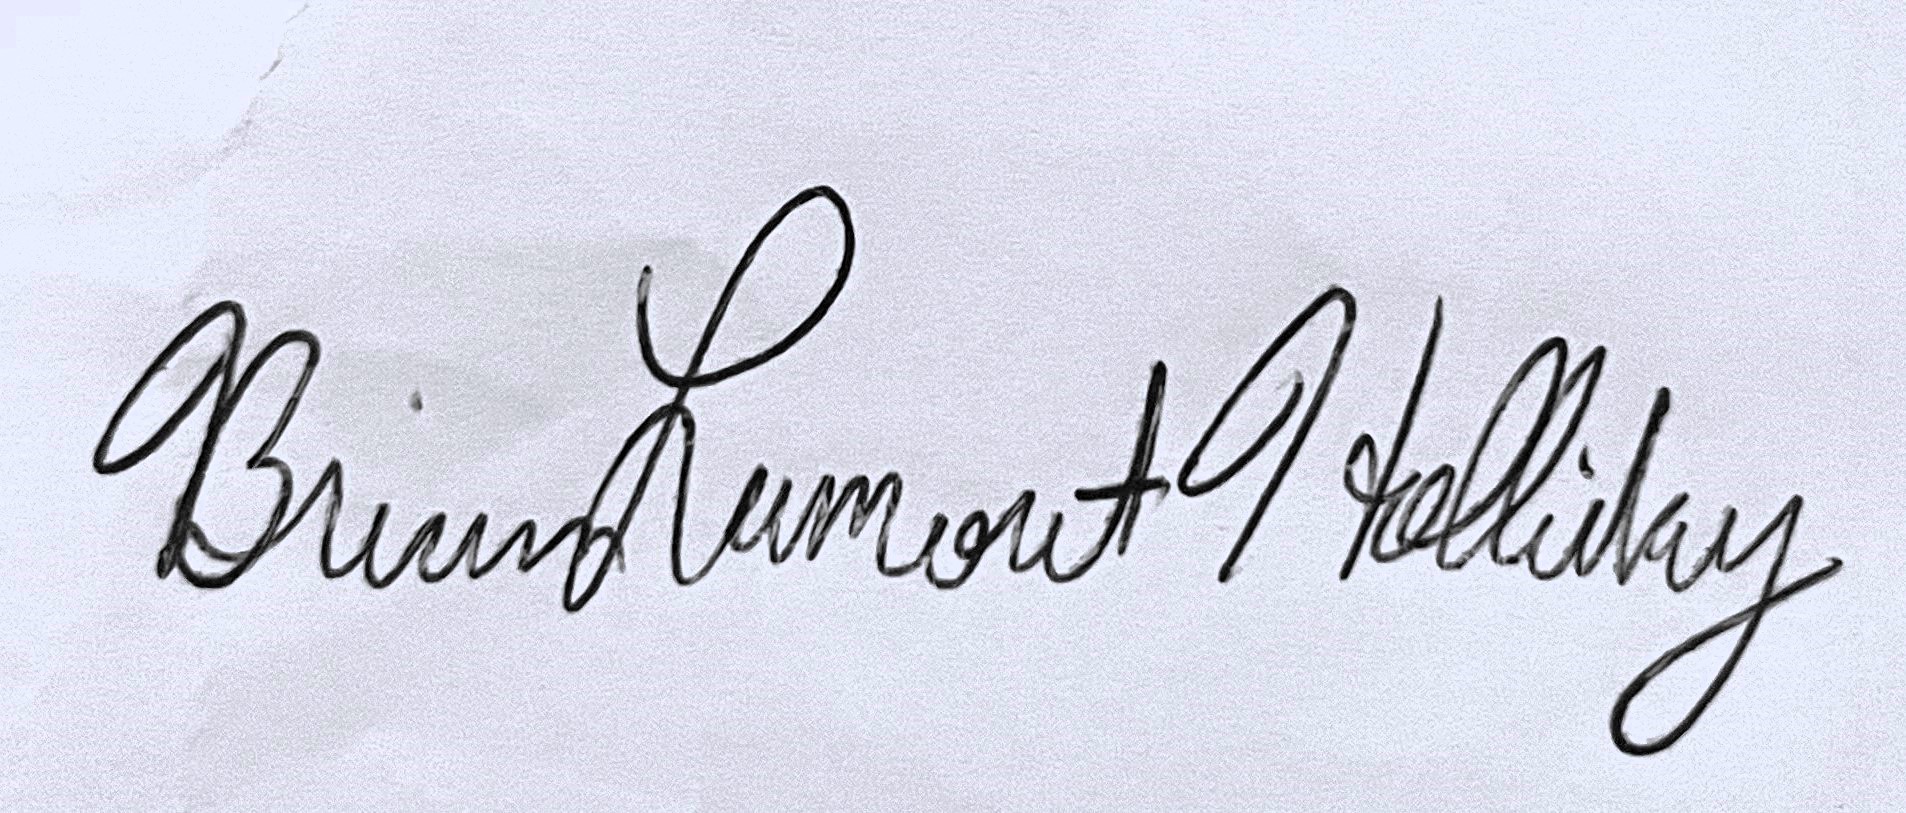 Brian Lamont Holliday